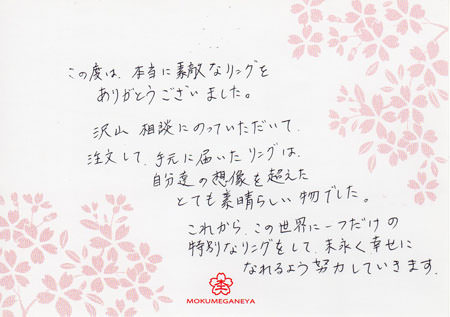 この度は、本当に素敵なリングを
ありがとうございました。
沢山 相談にのっていただいて、
注文して、手元に届いたリングは、
自分達の想像を超えた
とても素晴らしい物でした。
これから、この世界に一つだけの
特別なリングをして、末永く幸せに
なれるよう努力していきます。
MOKUMEGANEYA